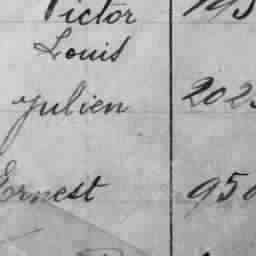 Victor
Louis
Julien 202
Ernest 950